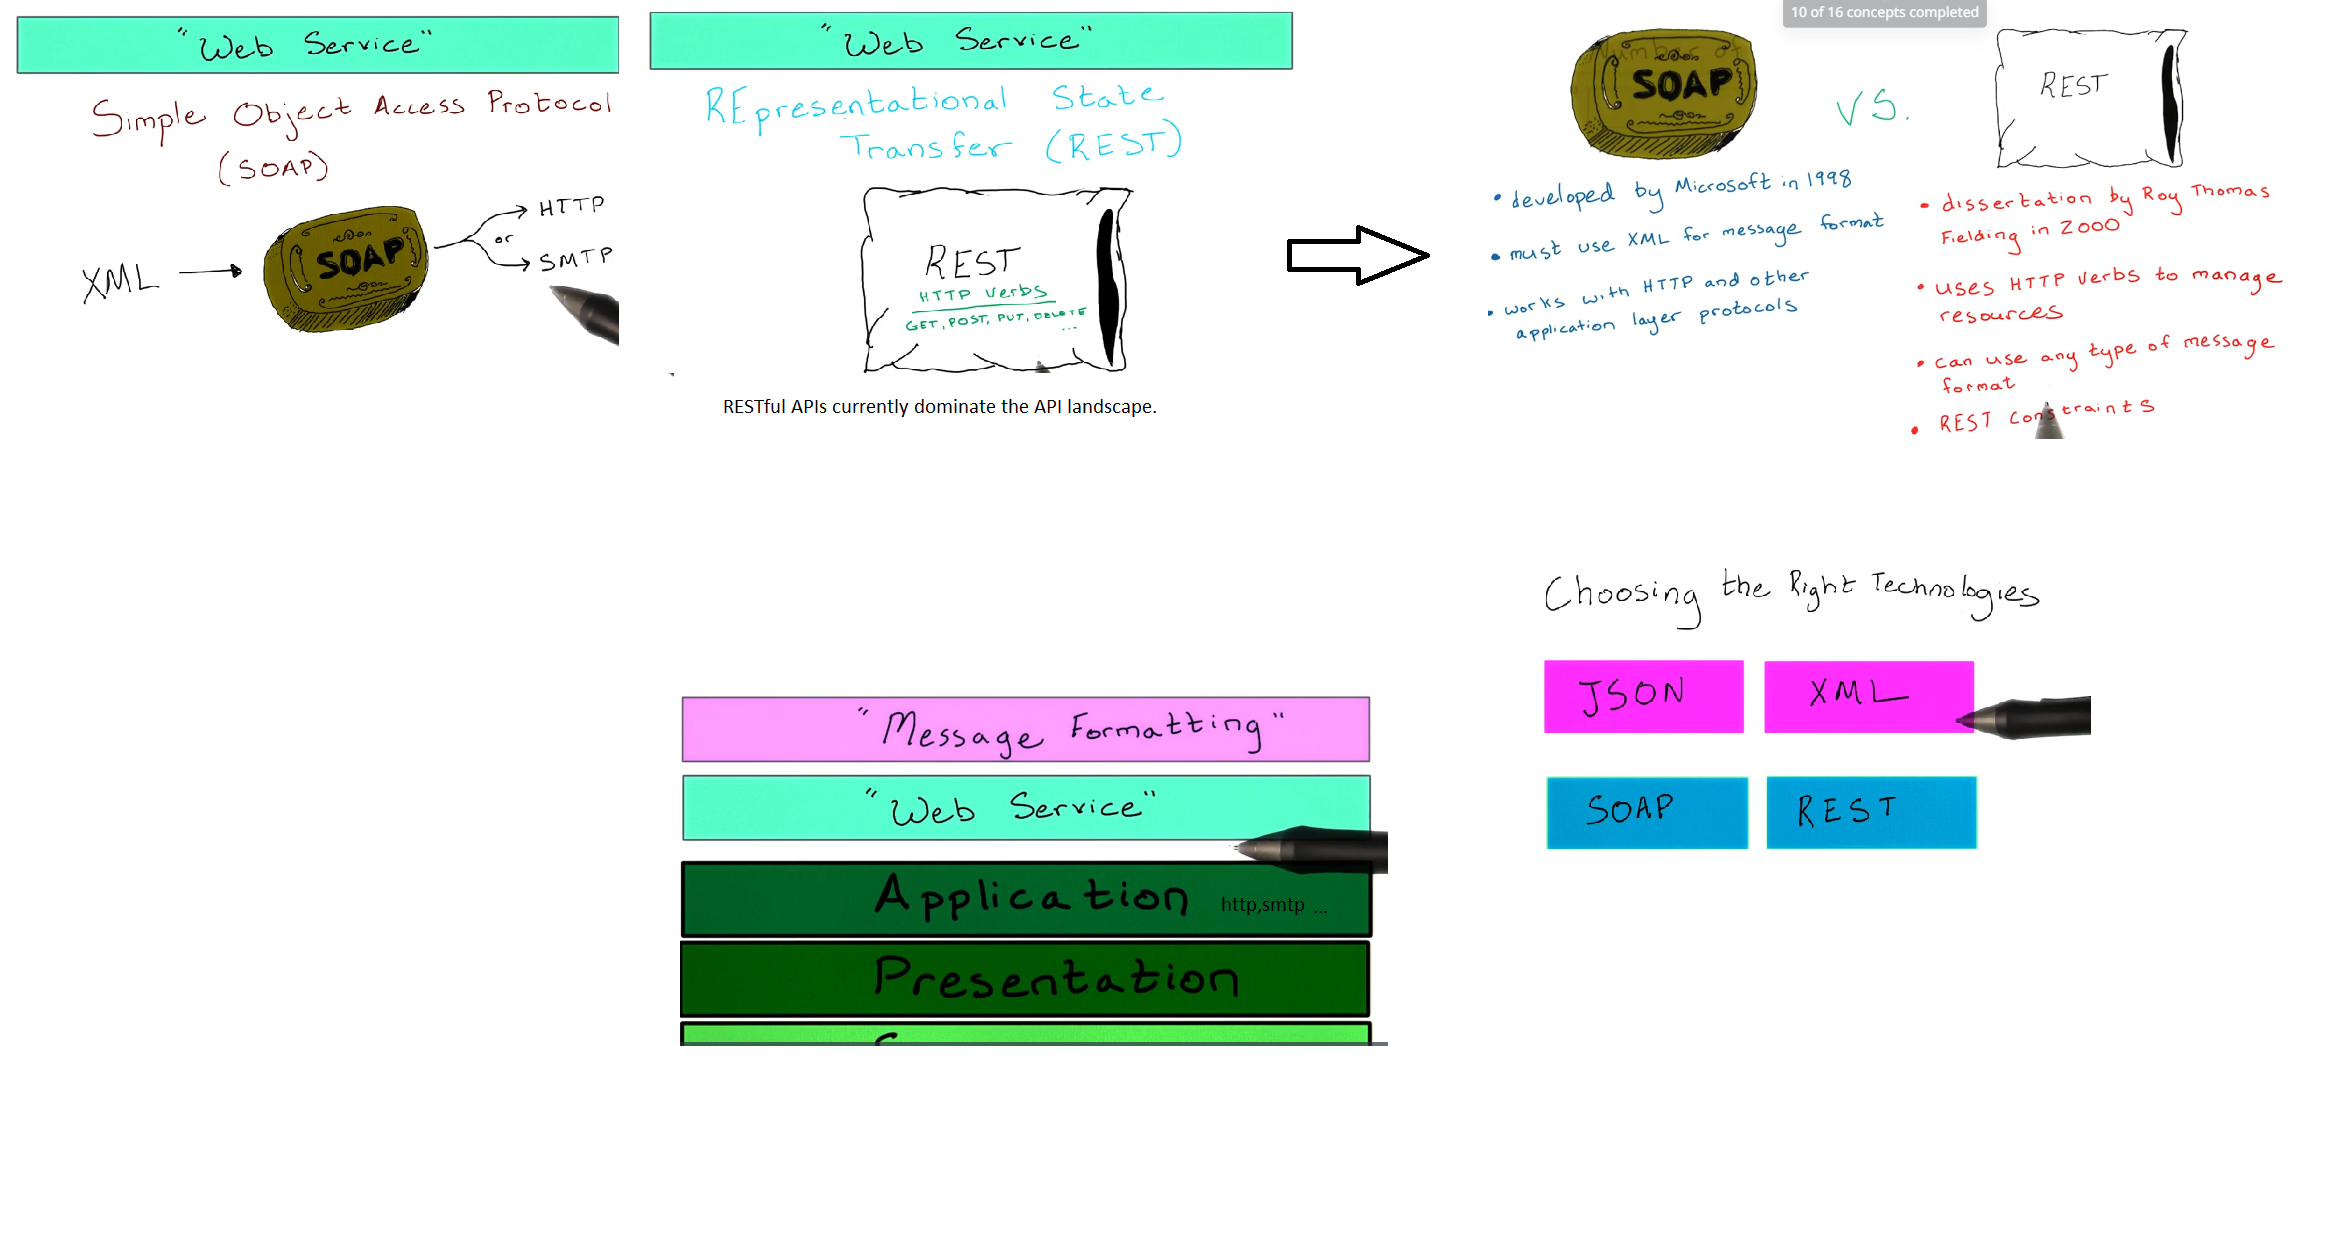 "Web Service"
Simple Object Access Protocol
(SOAP)
XML
SOAP
HTTP
or
SMTP
"Web Service"
REpresentational State
Transfer (REST)
REST
HTTP verbs
GET, POST, PUT, DELETE
...
RESTful APIs currently dominate the API landscape.
10 of 16 concepts completed
Number of
SOAP
VS.
REST
• developed by Microsoft in 1998
• must use XML for message format
• works with HTTP and other
application layer protocols
• dissertation by Roy Thomas
Fielding in 2000
• uses HTTP verbs to manage
resources
• can use any type of message
format
• REST constraints
"Message Formatting"
"Web Service"
Application http,smtp ...
Presentation
Choosing the Right Technologies
JSON XML
SOAP REST